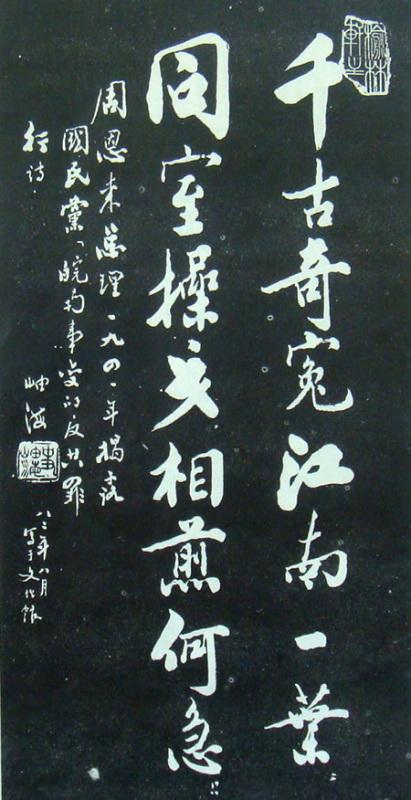 千古奇冤江南一葉
同室操戈相煎何急
周恩来总理一九四一年揭露
國民黨「皖南事变的反共罪
行诗
岫海
八三年八月
写于文化馆